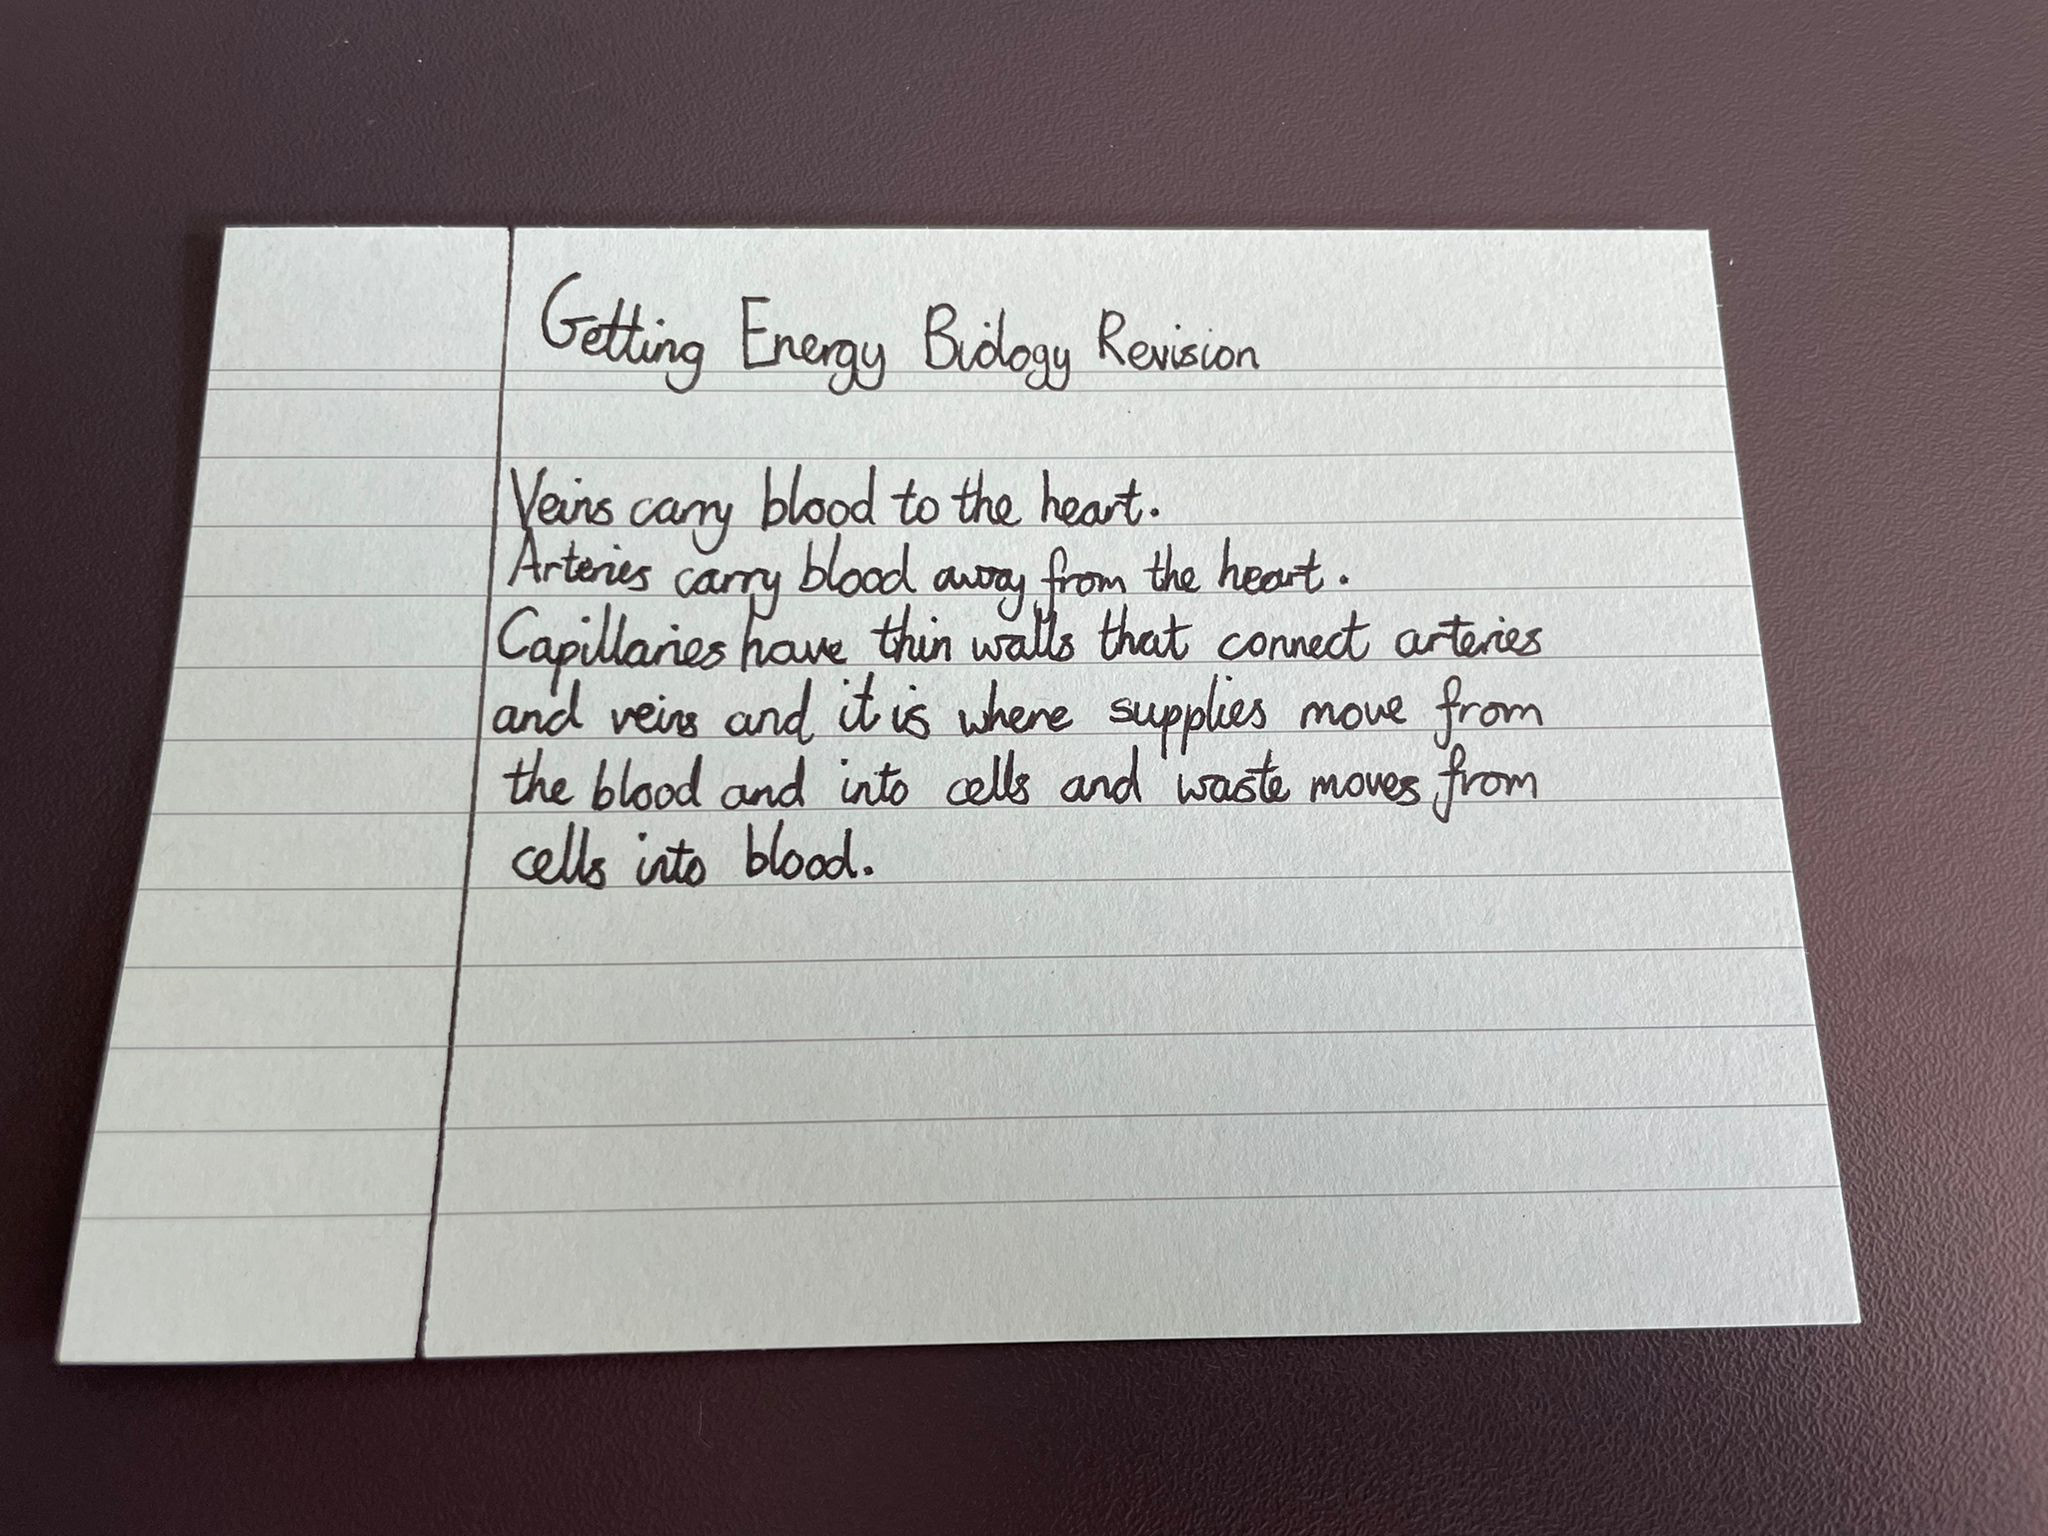 Getting Energy Biology Revision
Veins carry blood to the heart.
Arteries carry blood away from the heart.
Capillaries have thin walls that connect arteries
and veins and it is where supplies move from
the blood and into cells and waste moves from
cells into blood.